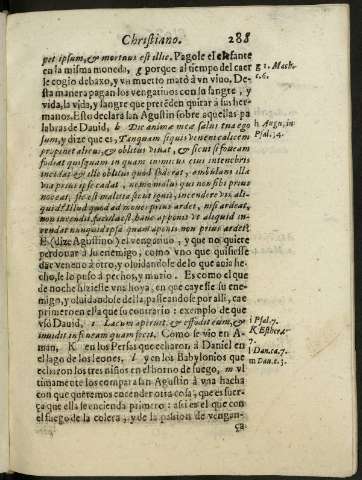 Christiano. 288
pet ipsum, & mortuus est illic. Pagole el elefante
en la misma moneda, g porque al tiempo del caer
le cogio debaxo, y vn muerto matò a vn viuo. De-
sta manera pagan los vengatiuos con su sangre, y
vida, la vida, y sangre que pretēden quitar à sus her-
manos. Esto declara san Agustin sobre aquellas pa
labras de Dauid, h Dic animæ meæ salus tua ego
sum, y dize que es, Tanquam si quis venenū alicem
propinet alteri, & oblitus bibat, & sicut si foueam
fodiat quisquam in quam inimicus eius in tenebris
incedat & ille oblitus quod foderat, ambulans illa
via prius ipse cadat, nemo malus qui non sibi prius
noceat, sic est malitia sicut ignis, incendere vis ali-
quid illud quod admoues prius ardet, nisi ardeat,
non incendit, facula est, hanc apponis vt aliquid in-
cendat nunquid ipsa quam aponis non prius ardet.
Es (dize Agustino) el vengatiuo, y que no quiere
perdonar à su enemigo, como vno que quisiesse
dar veneno à otro, y oluidandose de lo que auia he
cho, se lo puso à pechos, y murio. Es como el que
de noche hiziesse vna hoya, en que cayesse su ene-
migo, y oluidandose della, passeandose por alli, cae
primero en ella que su contrario: exemplo de que
vsó Dauid, i Lacum aperuit, & effodit eum, &
incidit in foueam quam fecit. Como se vio en A-
man, K en los Persas que echaron à Daniel en
el lago de los leones, l y en los Babylonios que
echaron los tres niños en el horno de fuego, m vl
timamente los compara san Agustin à vna hacha
con que queremos encender otra cosa, que es fuer-
ça que ella se encienda primero: assi es el que con
el fuego de la colera, y de la passion de vengan-
ça
g 1. Mach.
c.6.
h Augu. in
Psal. 34.
i Psal. 7.
K Esther.
7.
l Dan. ca. 7.
m Dan. c. 3.